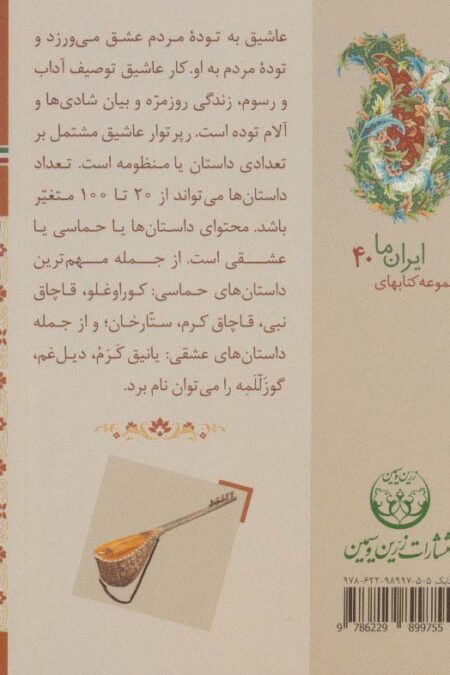 عاشیق به تودهٔ مردم عشق می‌ورزد و
تودهٔ مردم به او. کار عاشیق توصیف آداب
و رسوم، زندگی روزمرّه و بیان شادی‌ها و
آلام توده است. رپرتوار عاشیق مشتمل بر
تعدادی داستان یا منظومه است. تعداد
داستان‌ها می‌تواند از ۲۰ تا ۱۰۰ متغیّر
باشد. محتوای داستان‌ها یا حماسی یا
عشقی است. از جمله مهم‌ترین
داستان‌های حماسی: کوراوغلو، قاچاق
نبی، قاچاق کرم، ستّارخان؛ و از جمله
داستان‌های عشقی: یانیق کَرَمْ، دیل‌غم،
گوزَلّلَمِه را می‌توان نام برد.
ایران ما
۴۰
موعه کتابهای
زرین و سیمین
نتشارات زرّین و سیمین
ابک ۵-۵-۹۸۹۹۷-۶۲۲-۹۷۸
9 786229 899755